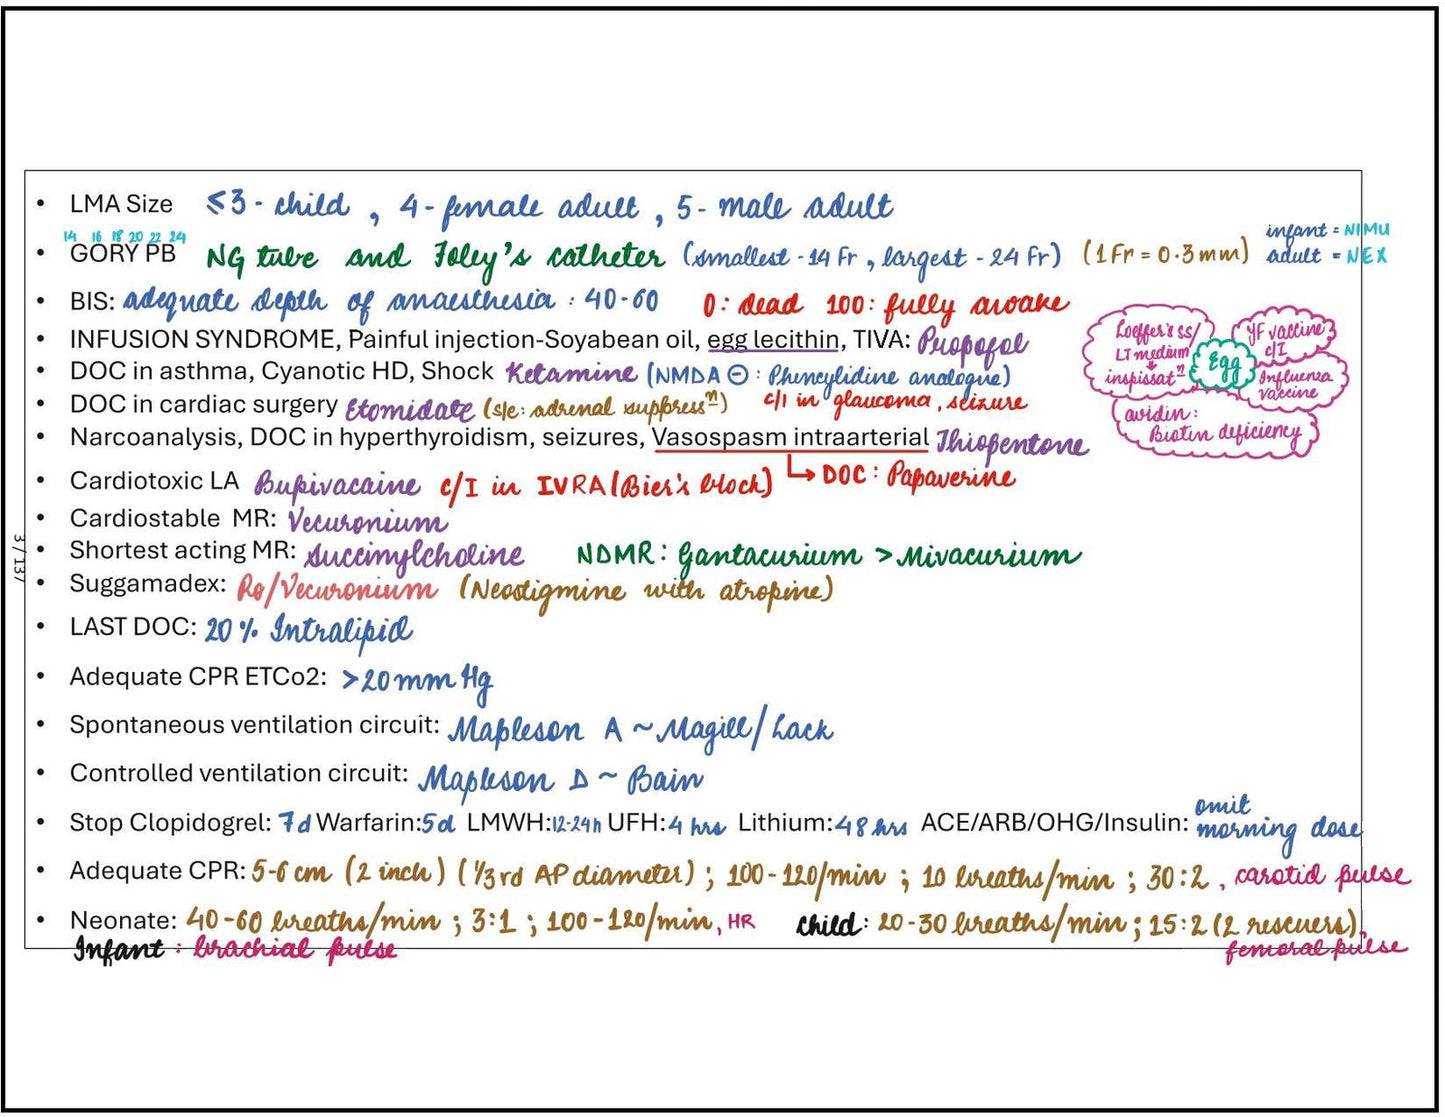 • LMA Size ≤3 - child , 4 - female adult , 5 - male adult
14 16 18 20 22 24
• GORY PB NG tube and Foley's catheter (smallest - 14 Fr , largest - 24 Fr) (1 Fr = 0.3 mm) infant = NIMU
adult = NEX
• BIS: adequate depth of anaesthesia : 40-60 0: dead 100: fully awake
• INFUSION SYNDROME, Painful injection-Soyabean oil, egg lecithin, TIVA: Propofol
• DOC in asthma, Cyanotic HD, Shock Ketamine (NMDA ⊖ : Phencylidine analogue)
• DOC in cardiac surgery Etomidate (s/e: adrenal suppressⁿ) c/I in glaucoma, seizure
Loeffer's ss/
LJ medium
↓
inspissatⁿ
Egg
YF vaccine
c/I
Influenza
vaccine
avidin:
Biotin deficiency
• Narcoanalysis, DOC in hyperthyroidism, seizures, Vasospasm intraarterial Thiopentone
↳ DOC : Papaverine
• Cardiotoxic LA Bupivacaine c/I in IVRA (Bier's block)
• Cardiostable MR: Vecuronium
• Shortest acting MR: Succinylcholine NDMR: Gantacurium > Mivacurium
3 / 137
• Suggamadex: Ro/Vecuronium (Neostigmine with atropine)
• LAST DOC: 20% Intralipid
• Adequate CPR ETCo2: >20 mm Hg
• Spontaneous ventilation circuit: Mapleson A ~ Magill/Lack
• Controlled ventilation circuit: Mapleson D ~ Bain
• Stop Clopidogrel: 7d Warfarin:5d LMWH:12-24h UFH:4 hrs Lithium:48hrs ACE/ARB/OHG/Insulin: omit
morning dose
• Adequate CPR: 5-6 cm (2 inch) (1/3rd AP diameter) ; 100-120/min ; 10 breaths/min ; 30:2 , carotid pulse
• Neonate: 40-60 breaths/min ; 3:1 ; 100-120/min, HR child: 20-30 breaths/min ; 15:2 (2 rescuers),
Infant : brachial pulse femoral pulse